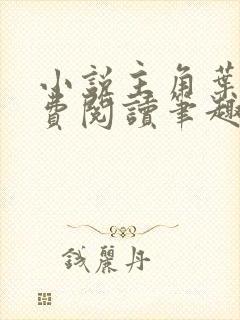 小說主角葉
費閱讀筆趣
錢麗丹